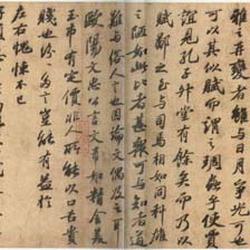 雅之再變者雖與日月爭光可
也可以其似賦而謂之雕蟲乎使賈
誼見孔子升堂有餘矣而乃以
賦鄙之至與司馬相如同科雄
之陋如此比者甚衆可與知者道
難與俗人言也因論文偶及之耳
歐陽文忠公言文章如精金美
玉市有定價非人所能以口舌貴
賤也紛紛多言豈能有益於
左右愧悚不已